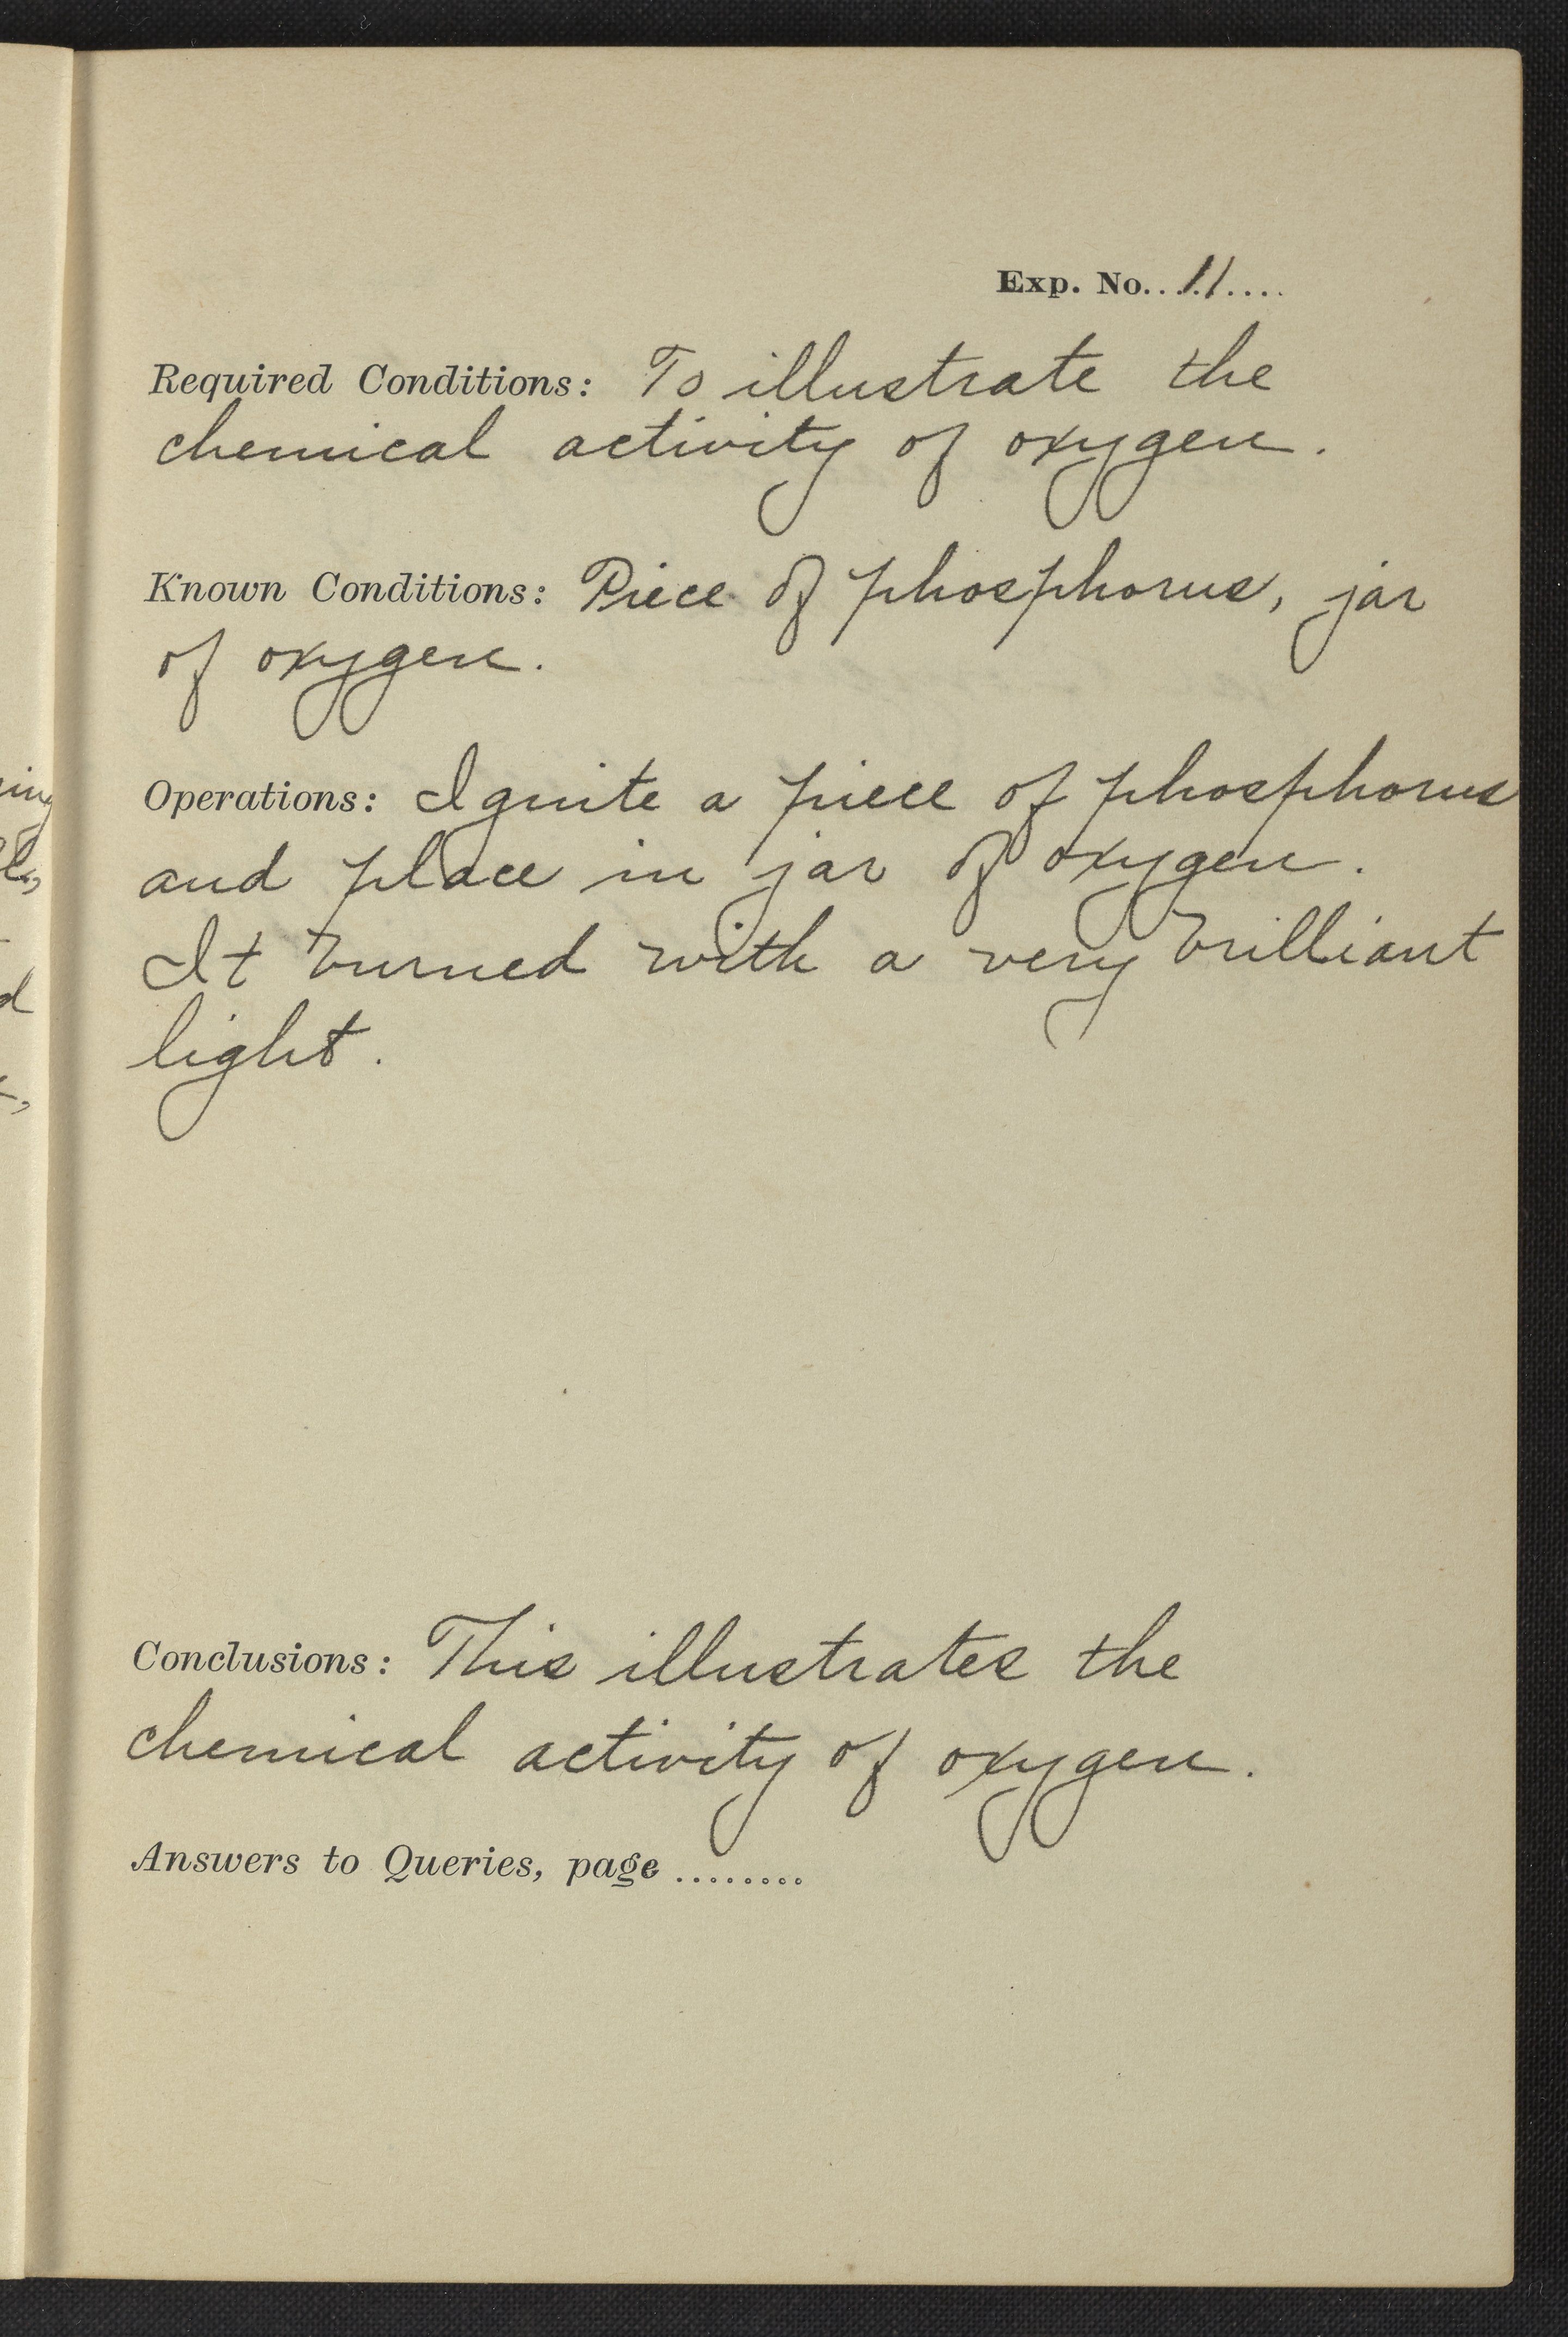 Exp. No. 11
Required Conditions: To illustrate the
chemical activity of oxygen.
Known Conditions: Piece of phosphorus, jar
of oxygen.
Operations: Ignite a piece of phosphorus
and place in jar of oxygen.
It burned with a very brilliant
light.
Conclusions: This illustrates the
chemical activity of oxygen.
Answers to Queries, page ........